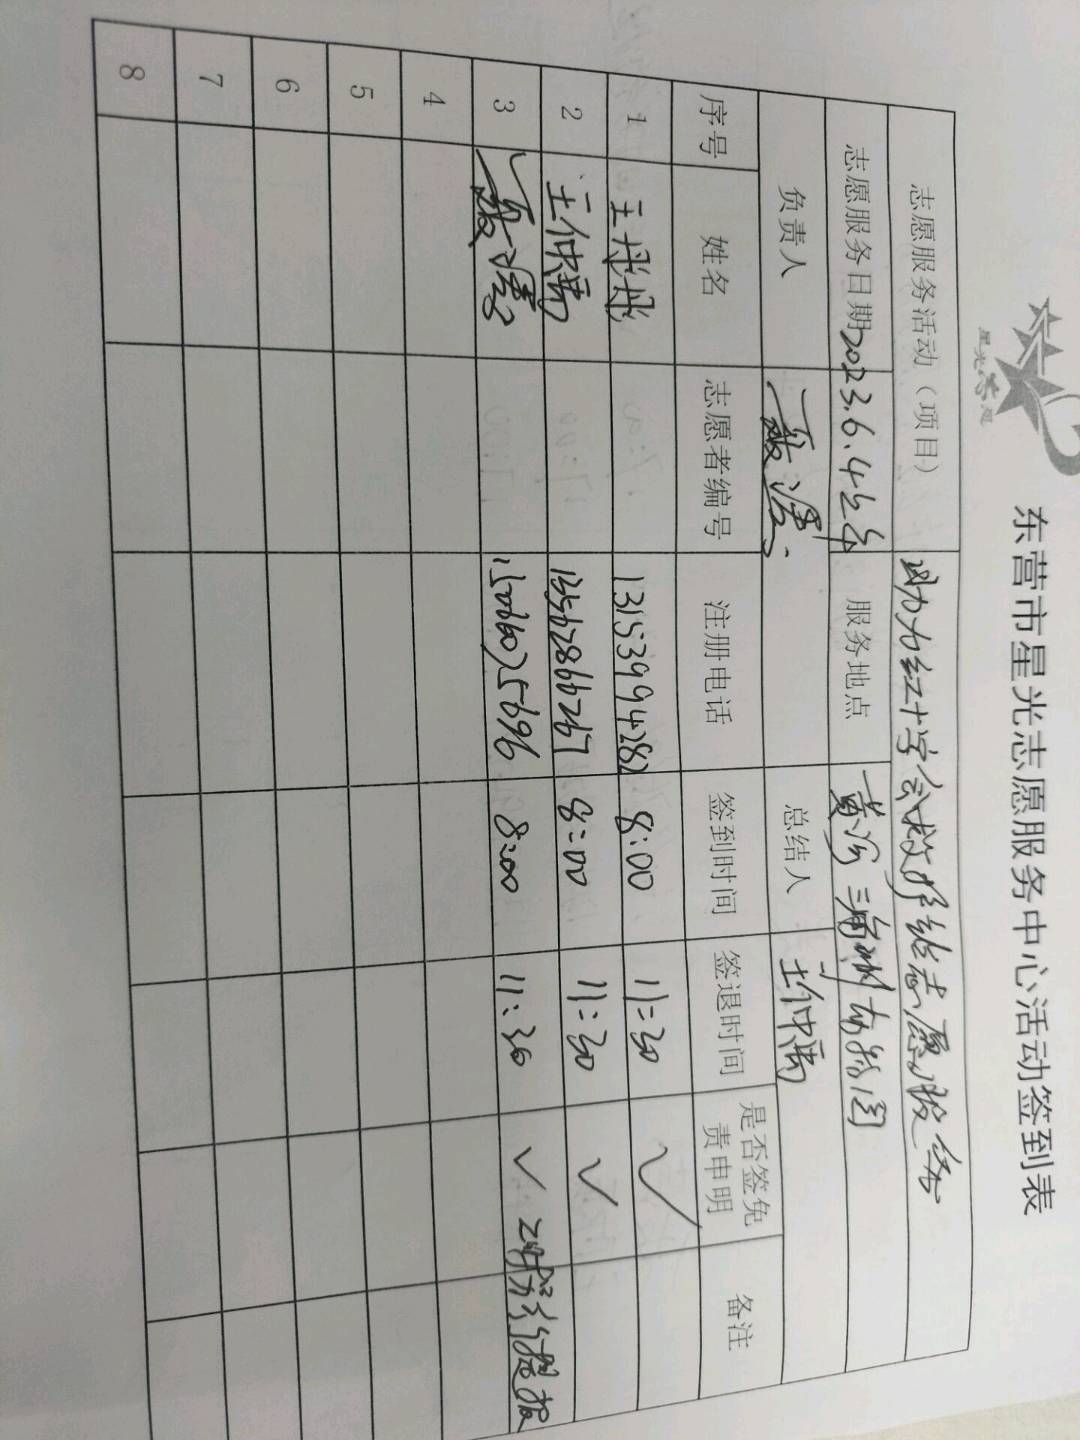 东营市星光志愿服务中心活动签到表
志愿服务活动（项目） 助力红十字会救护 志愿服务
志愿服务日期 2023.6.4上午 服务地点 黄河三角洲动物园
负责人 总结人 王仲禹
序号 姓名 志愿者编号 注册电话 签到时间 签退时间 是否签免责申明 备注
1 王彤彤 13153994282 8:00 11:30 ✓
2 王仲禹 13562866267 8:00 11:30 ✓
3 15066075696 8:00 11:30 ✓
4
5
6
7
8